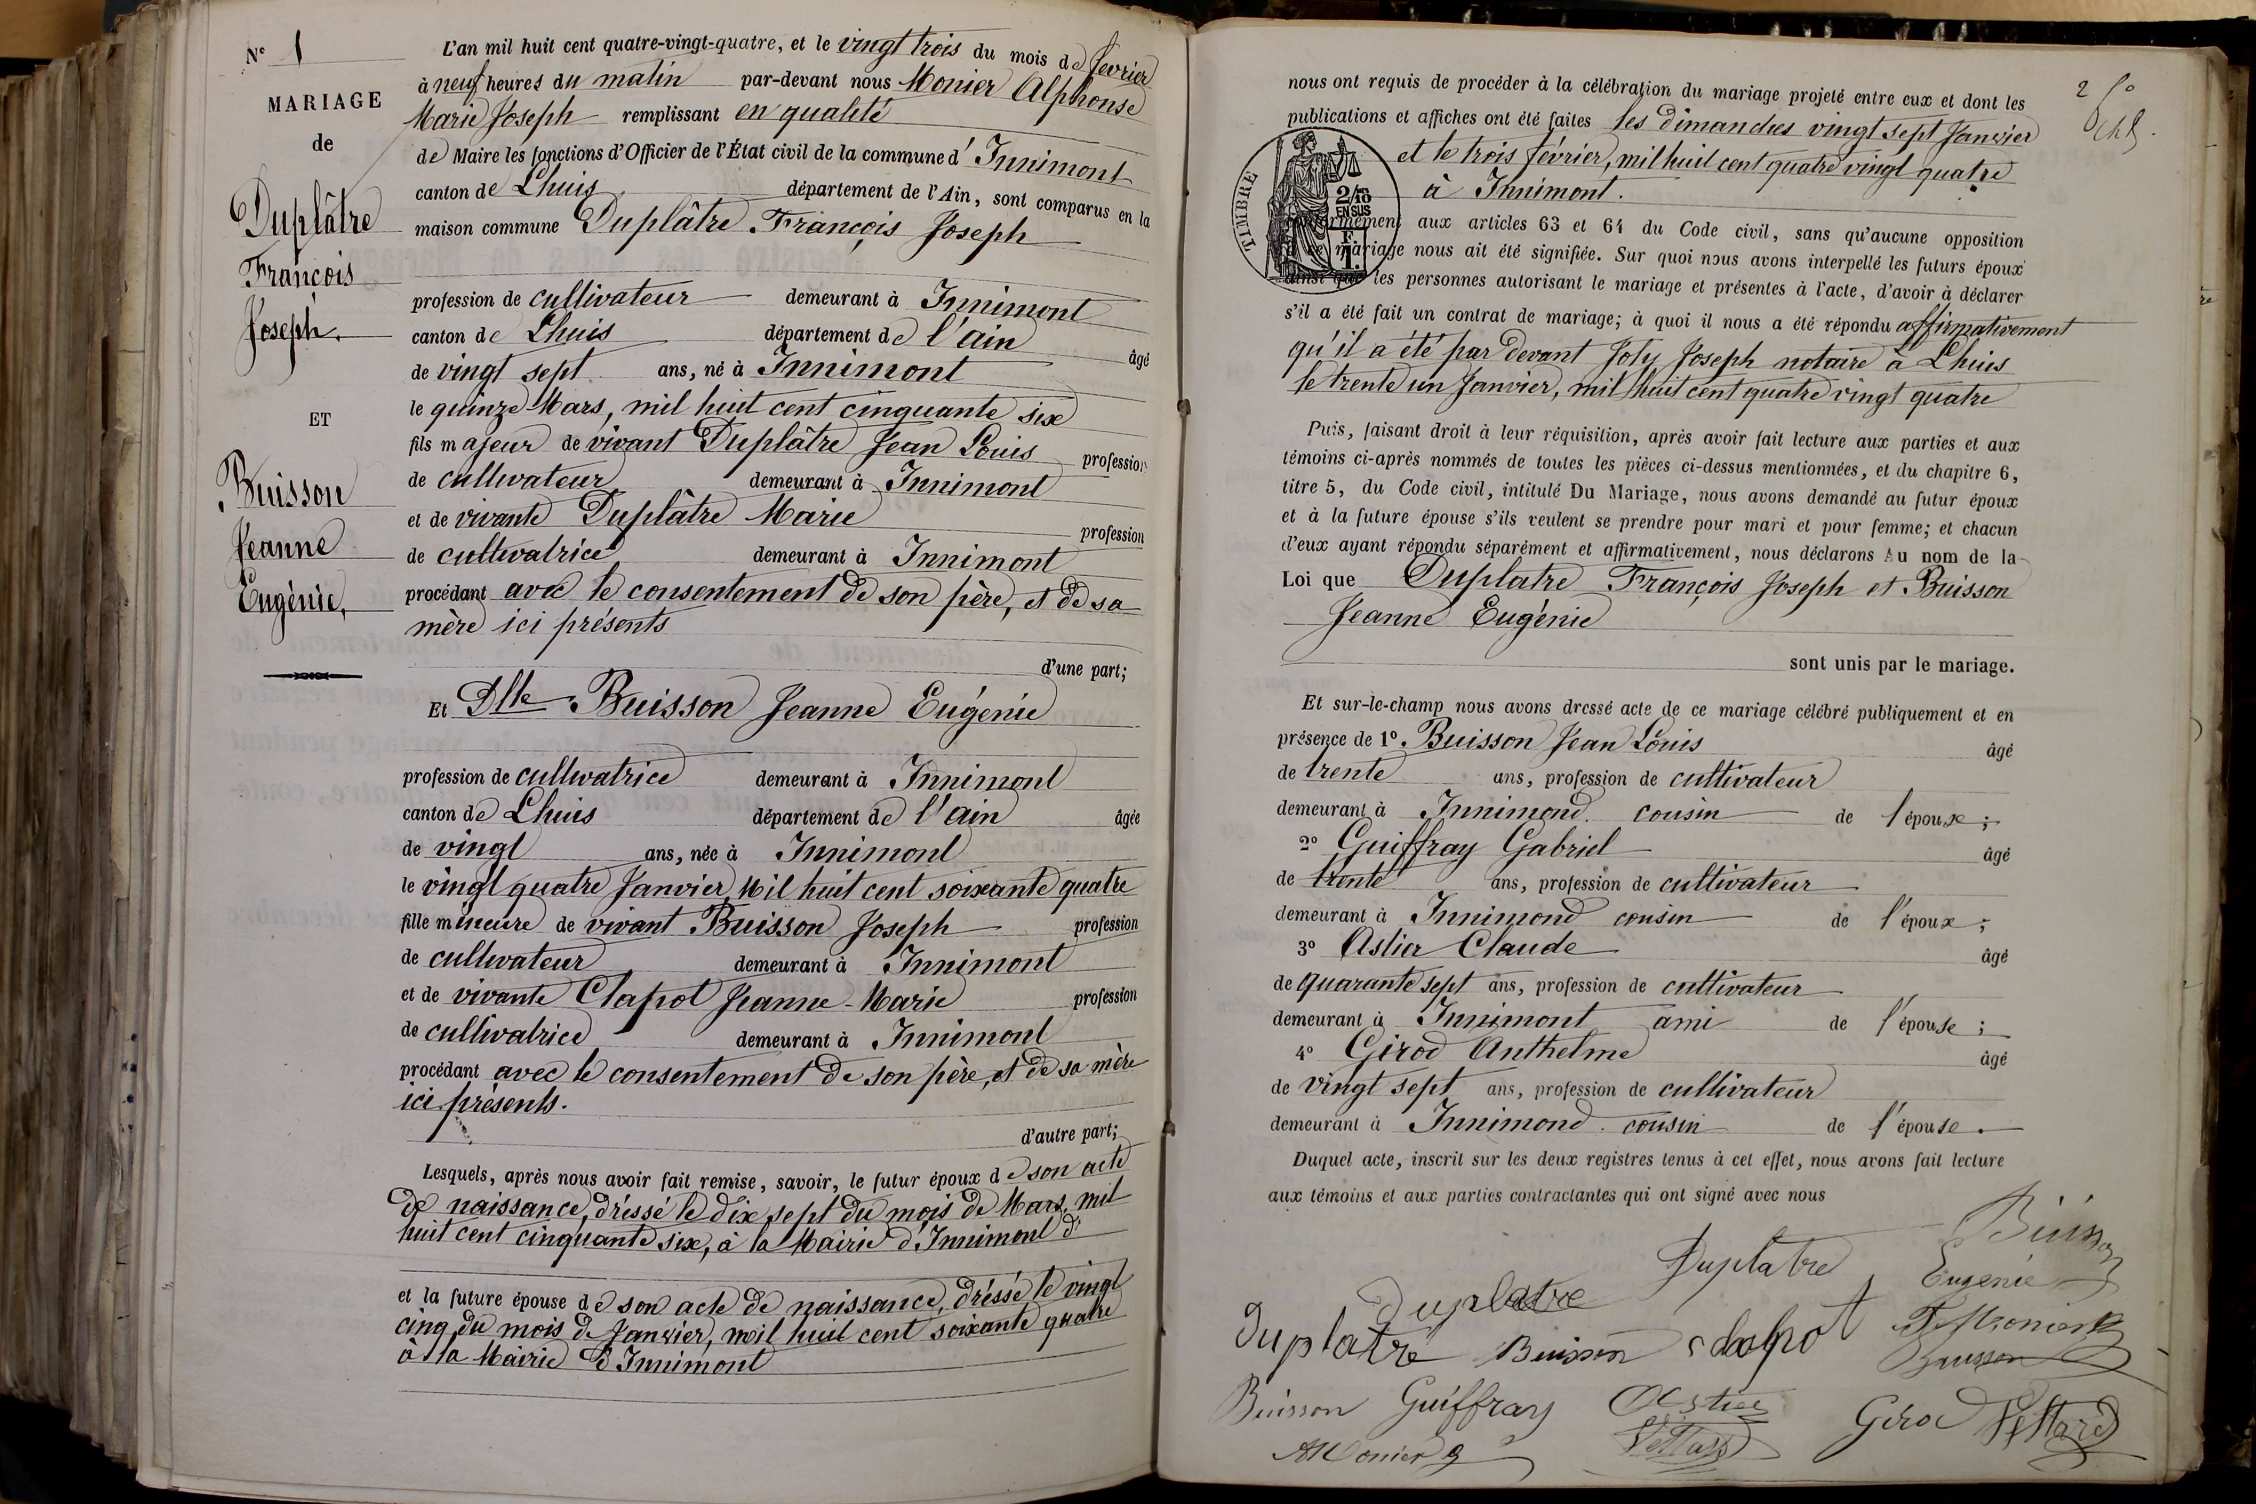 N° 1
MARIAGE
de
Duplâtre
François
Joseph.
ET
Buisson
Jeanne
Eugénie,
L'an mil huit cent quatre-vingt-quatre, et le vingt trois du mois de février
à neuf heures du matin par-devant nous Monier Alphonse
Marie Joseph remplissant en qualité
de Maire les fonctions d'Officier de l'État civil de la commune d'Innimont
canton de Lhuis département de l'Ain, sont comparus en la
maison commune Duplâtre François Joseph
profession de cultivateur demeurant à Innimont
canton de Lhuis département de l'ain
âgé
de vingt sept ans, né à Innimont
le quinze Mars, mil huit cent cinquante six
fils majeur de vivant Duplâtre Jean Louis profession
de cultivateur demeurant à Innimont
et de vivante Duplâtre Marie profession
de cultivatrice demeurant à Innimont
procédant avec le consentement de son père, et de sa
mère ici présents
d'une part;
Et Dlle Buisson Jeanne Eugénie
profession de cultivatrice demeurant à Innimont
canton de Lhuis département de l'ain âgée
de vingt ans, née à Innimont
le vingt quatre Janvier Mil huit cent soixante quatre
fille mineure de vivant Buisson Joseph profession
de cultivateur demeurant à Innimont
et de vivante Clapot Jeanne-Marie profession
de cultivatrice demeurant à Innimont
procédant avec le consentement de son père, et de sa mère
ici présents.
d'autre part;
Lesquels, après nous avoir fait remise, savoir, le futur époux de son acte
de naissance, dréssé le dix sept du mois de Mars, mil
huit cent cinquante six, à la Mairie d'Innimont
et la future épouse de son acte de naissance, dréssé le vingt
cinq du mois de Janvier, mil huit cent soixante quatre
à la Mairie d'Innimont
nous ont requis de procéder à la célébration du mariage projeté entre eux et dont les
publications et affiches ont été faites les dimanches vingt sept Janvier
et le trois février, mil huit cent quatre vingt quatre
à Innimont.
TIMBRE
2/10
EN SUS
F
1.
conformément aux articles 63 et 64 du Code civil, sans qu'aucune opposition
à ce mariage nous ait été signifiée. Sur quoi nous avons interpellé les futurs époux
ainsi que les personnes autorisant le mariage et présentes à l'acte, d'avoir à déclarer
s'il a été fait un contrat de mariage; à quoi il nous a été répondu affirmativement
qu'il a été par devant Joly Joseph notaire à Lhuis
le trente un Janvier, mil huit cent quatre vingt quatre
Puis, faisant droit à leur réquisition, après avoir fait lecture aux parties et aux
témoins ci-après nommés de toutes les pièces ci-dessus mentionnées, et du chapitre 6,
titre 5, du Code civil, intitulé Du Mariage, nous avons demandé au futur époux
et à la future épouse s'ils veulent se prendre pour mari et pour femme; et chacun
d'eux ayant répondu séparément et affirmativement, nous déclarons Au nom de la
Loi que Duplatre François Joseph et Buisson
Jeanne Eugénie
sont unis par le mariage.
Et sur-le-champ nous avons dressé acte de ce mariage célébré publiquement et en
présence de 1° Buisson Jean Louis âgé
de trente ans, profession de cultivateur
demeurant à Innimond. cousin de l'épouse;
2° Guiffray Gabriel âgé
de trente ans, profession de cultivateur
demeurant à Innimond cousin de l'époux;
3° Astier Claude âgé
de quarante sept ans, profession de cultivateur
demeurant à Innimont ami de l'épouse;
4° Girod Anthelme âgé
de vingt sept ans, profession de cultivateur
demeurant à Innimond. cousin de l'épouse.
Duquel acte, inscrit sur les deux registres tenus à cet effet, nous avons fait lecture
aux témoins et aux parties contractantes qui ont signé avec nous
Duplatre Buisson
Eugénie
duplatre
duplatre Buisson clapot
Buisson Guiffray Astier Girod
AMonier